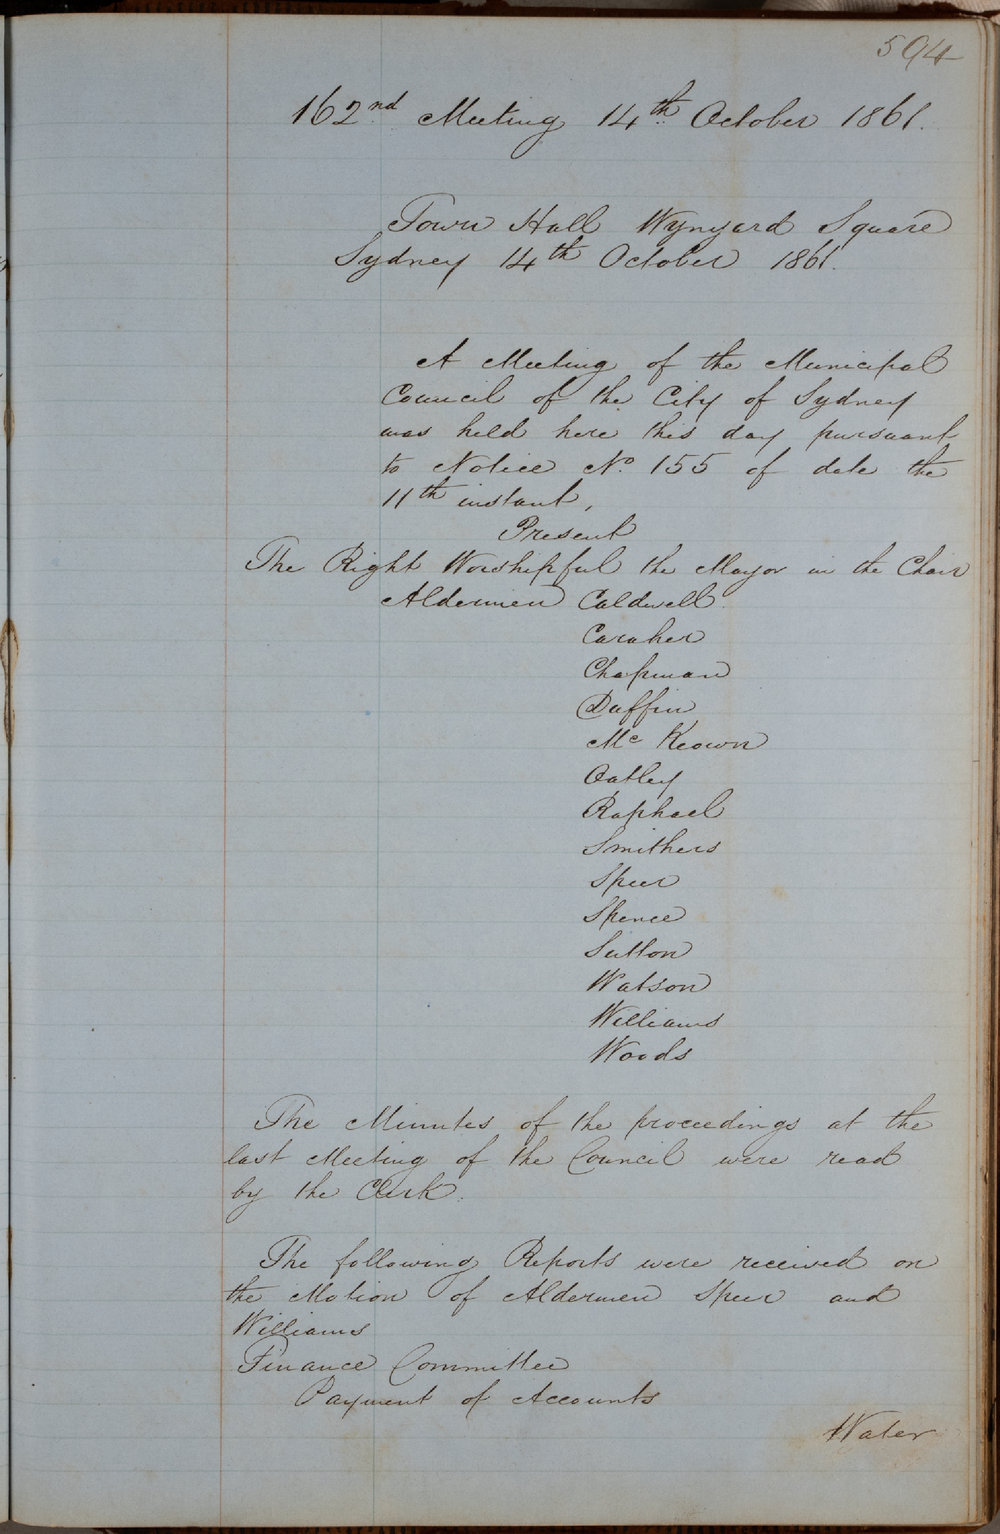 594
162nd Meeting 14th October 1861.
Town Hall Wynyard Square
Sydney 14th October 1861.
A Meeting of the Municipal
Council of the City of Sydney
was held here this day pursuant
to Notice No. 155 of date the
11th instant,
Present
The Right Worshipful the Mayor in the Chair
Aldermen Caldwell
Caraher
Chapman
Duffin
Mc Keown
Oatley
Raphael
Smithers
Speer
Spence
Sutton
Watson
Williams
Woods
The Minutes of the proceedings at the
last Meeting of the Council were read
by the Clerk.
The following Reports were received on
the Motion of Aldermen Speer and
Williams
Finance Committee
Payment of Accounts
Water